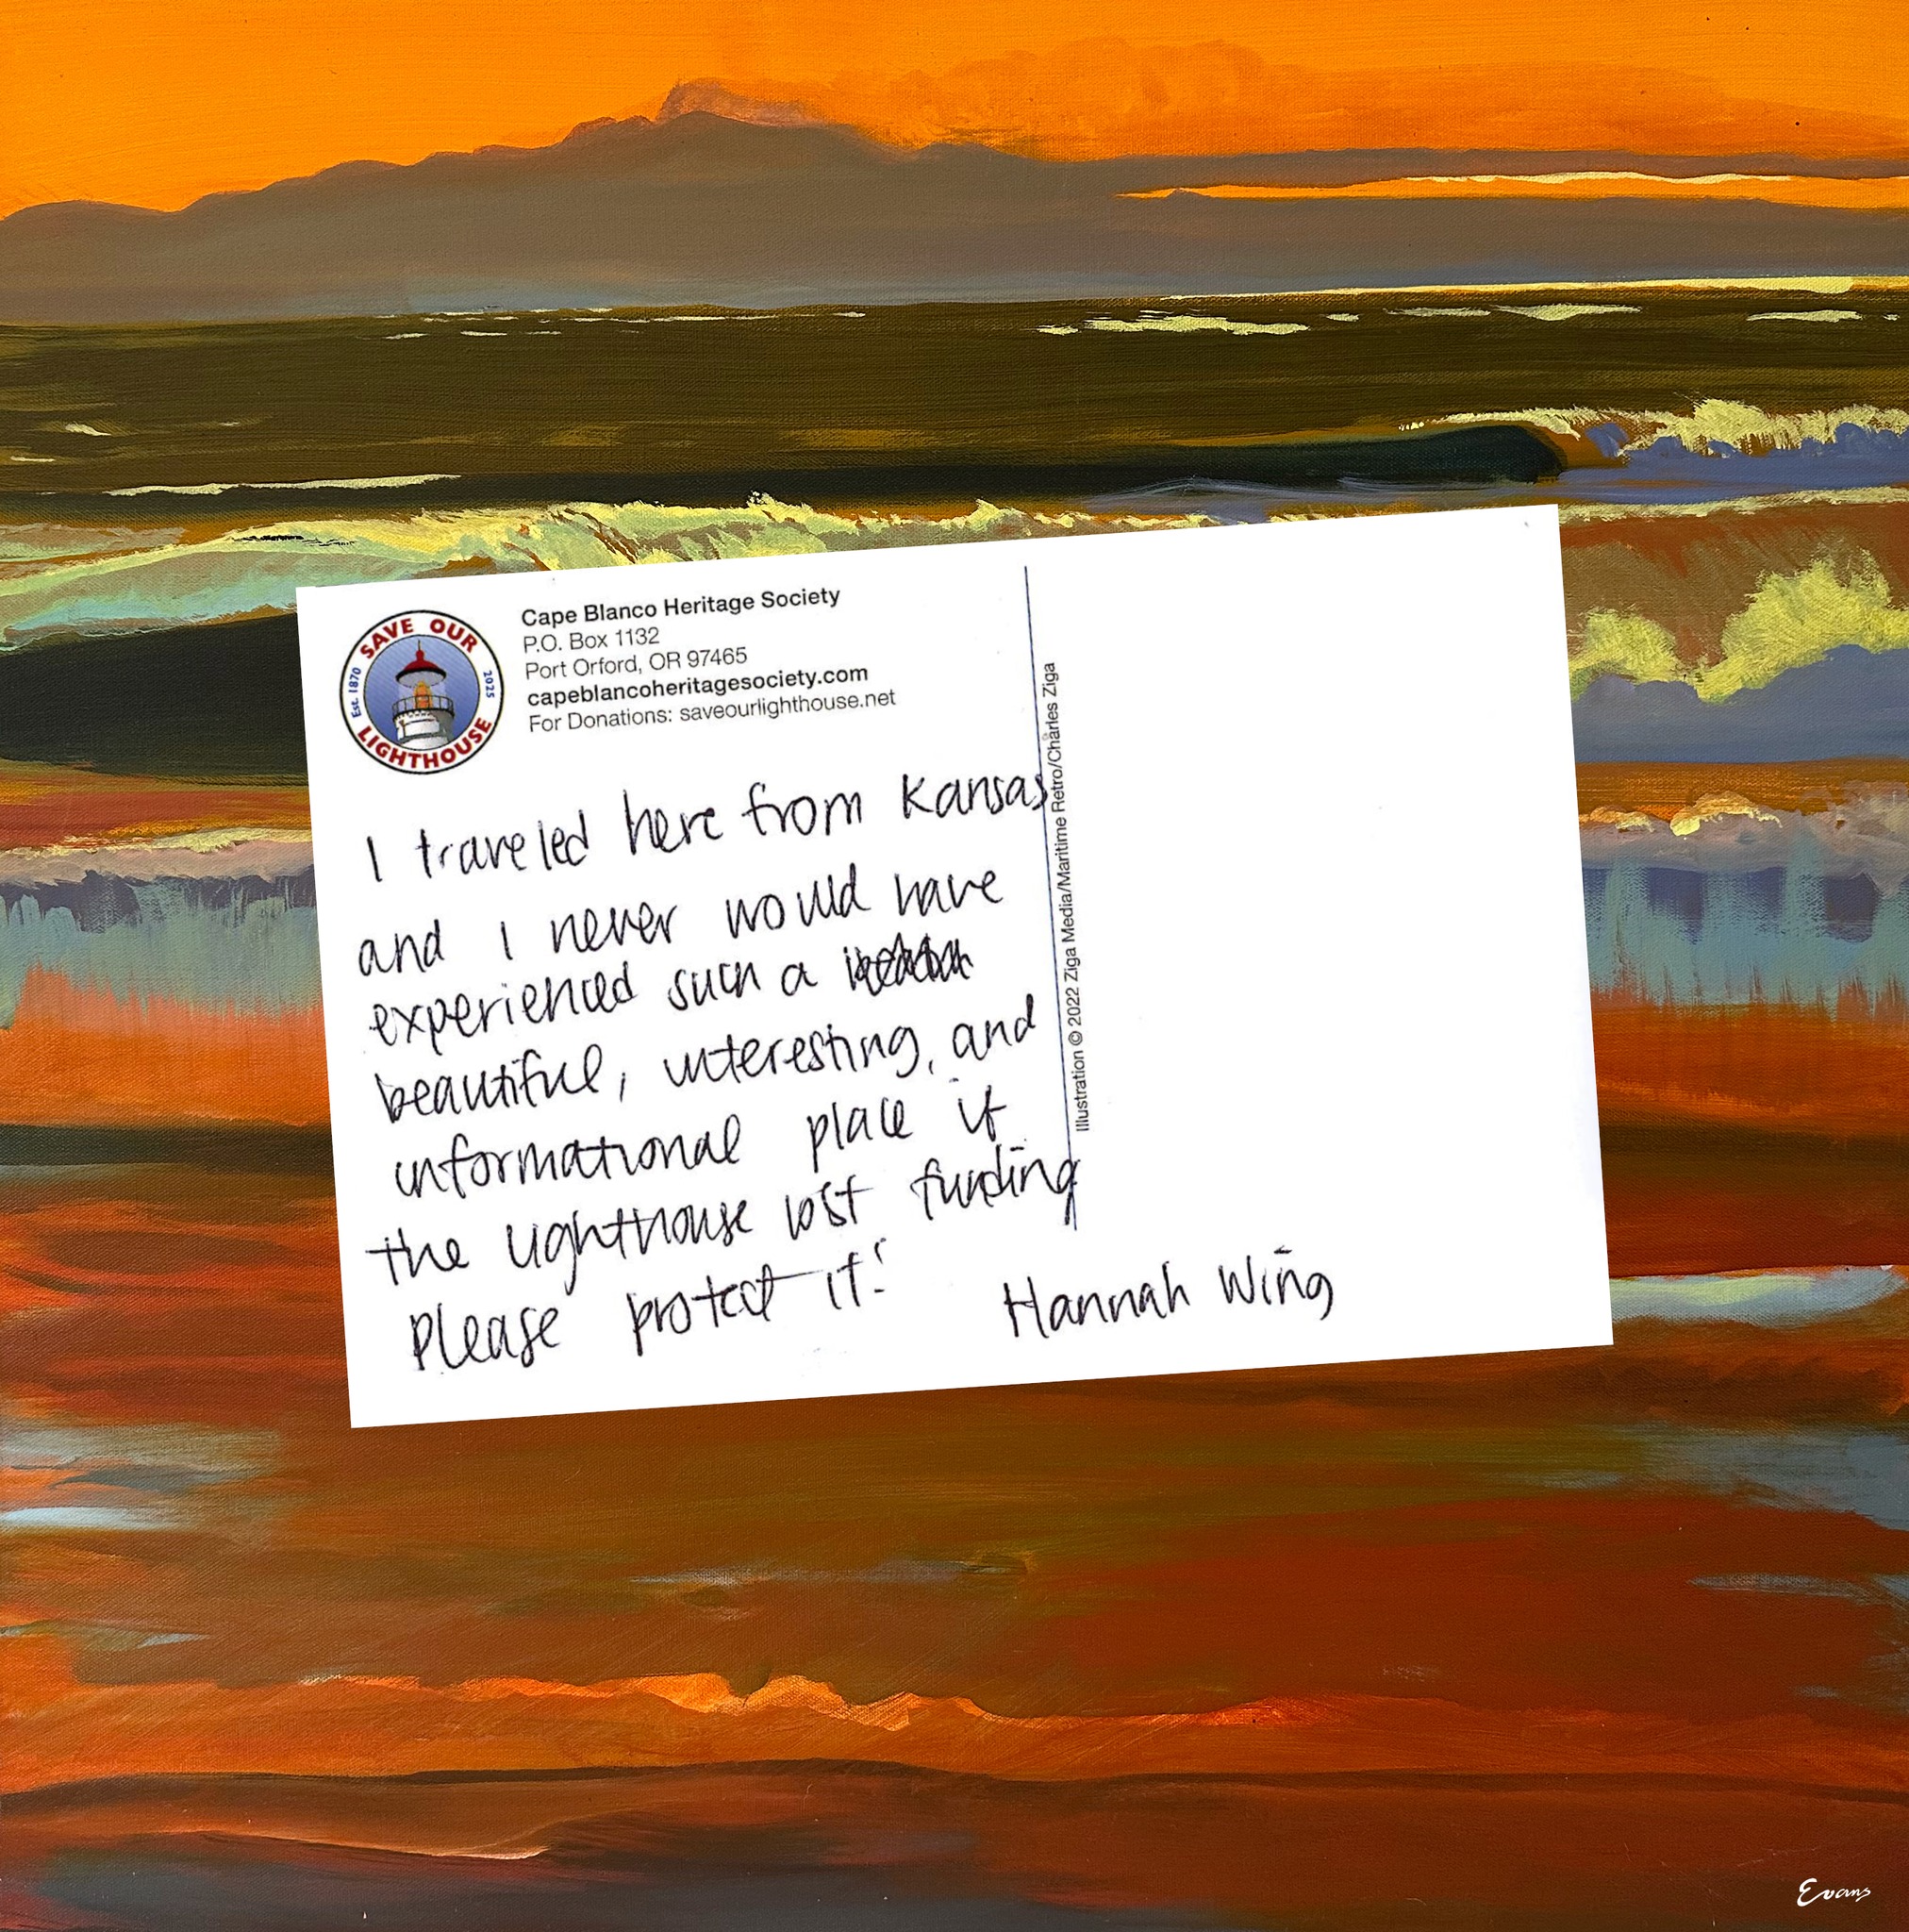 SAVE OUR
LIGHTHOUSE
Est. 1870
2025
Cape Blanco Heritage Society
P.O. Box 1132
Port Orford, OR 97465
capeblancoheritagesociety.com
For Donations: saveourlighthouse.net
I traveled here from Kansas
and I never would have
experienced such a
beautiful, interesting, and
informational place if
the lighthouse lost funding
please protect it!
Hannah Wing
Illustration © 2022 Ziga Media/Maritime Retro/Charles Ziga
Evans